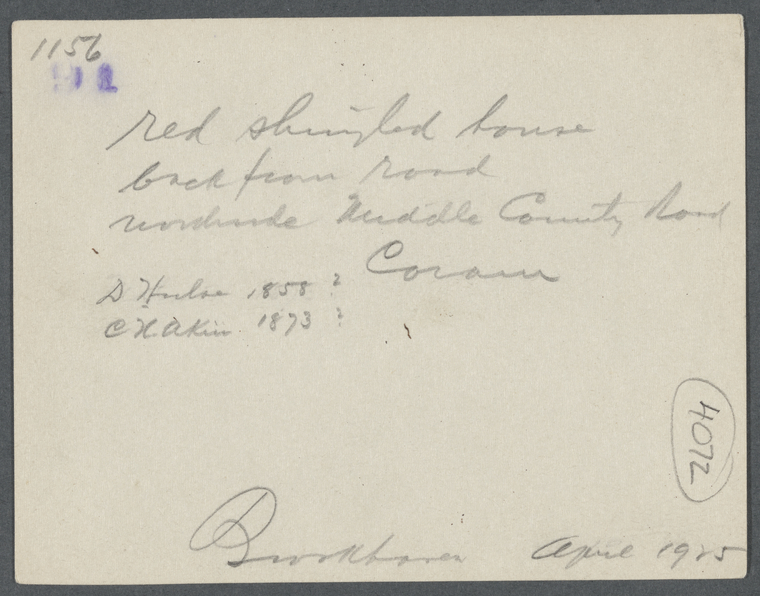 1156
red shingled house
back from road
northside Middle County Road
Coram
D Hulse 1858 ?
C H Akin 1873 ?
4072
Brookhaven April 1925